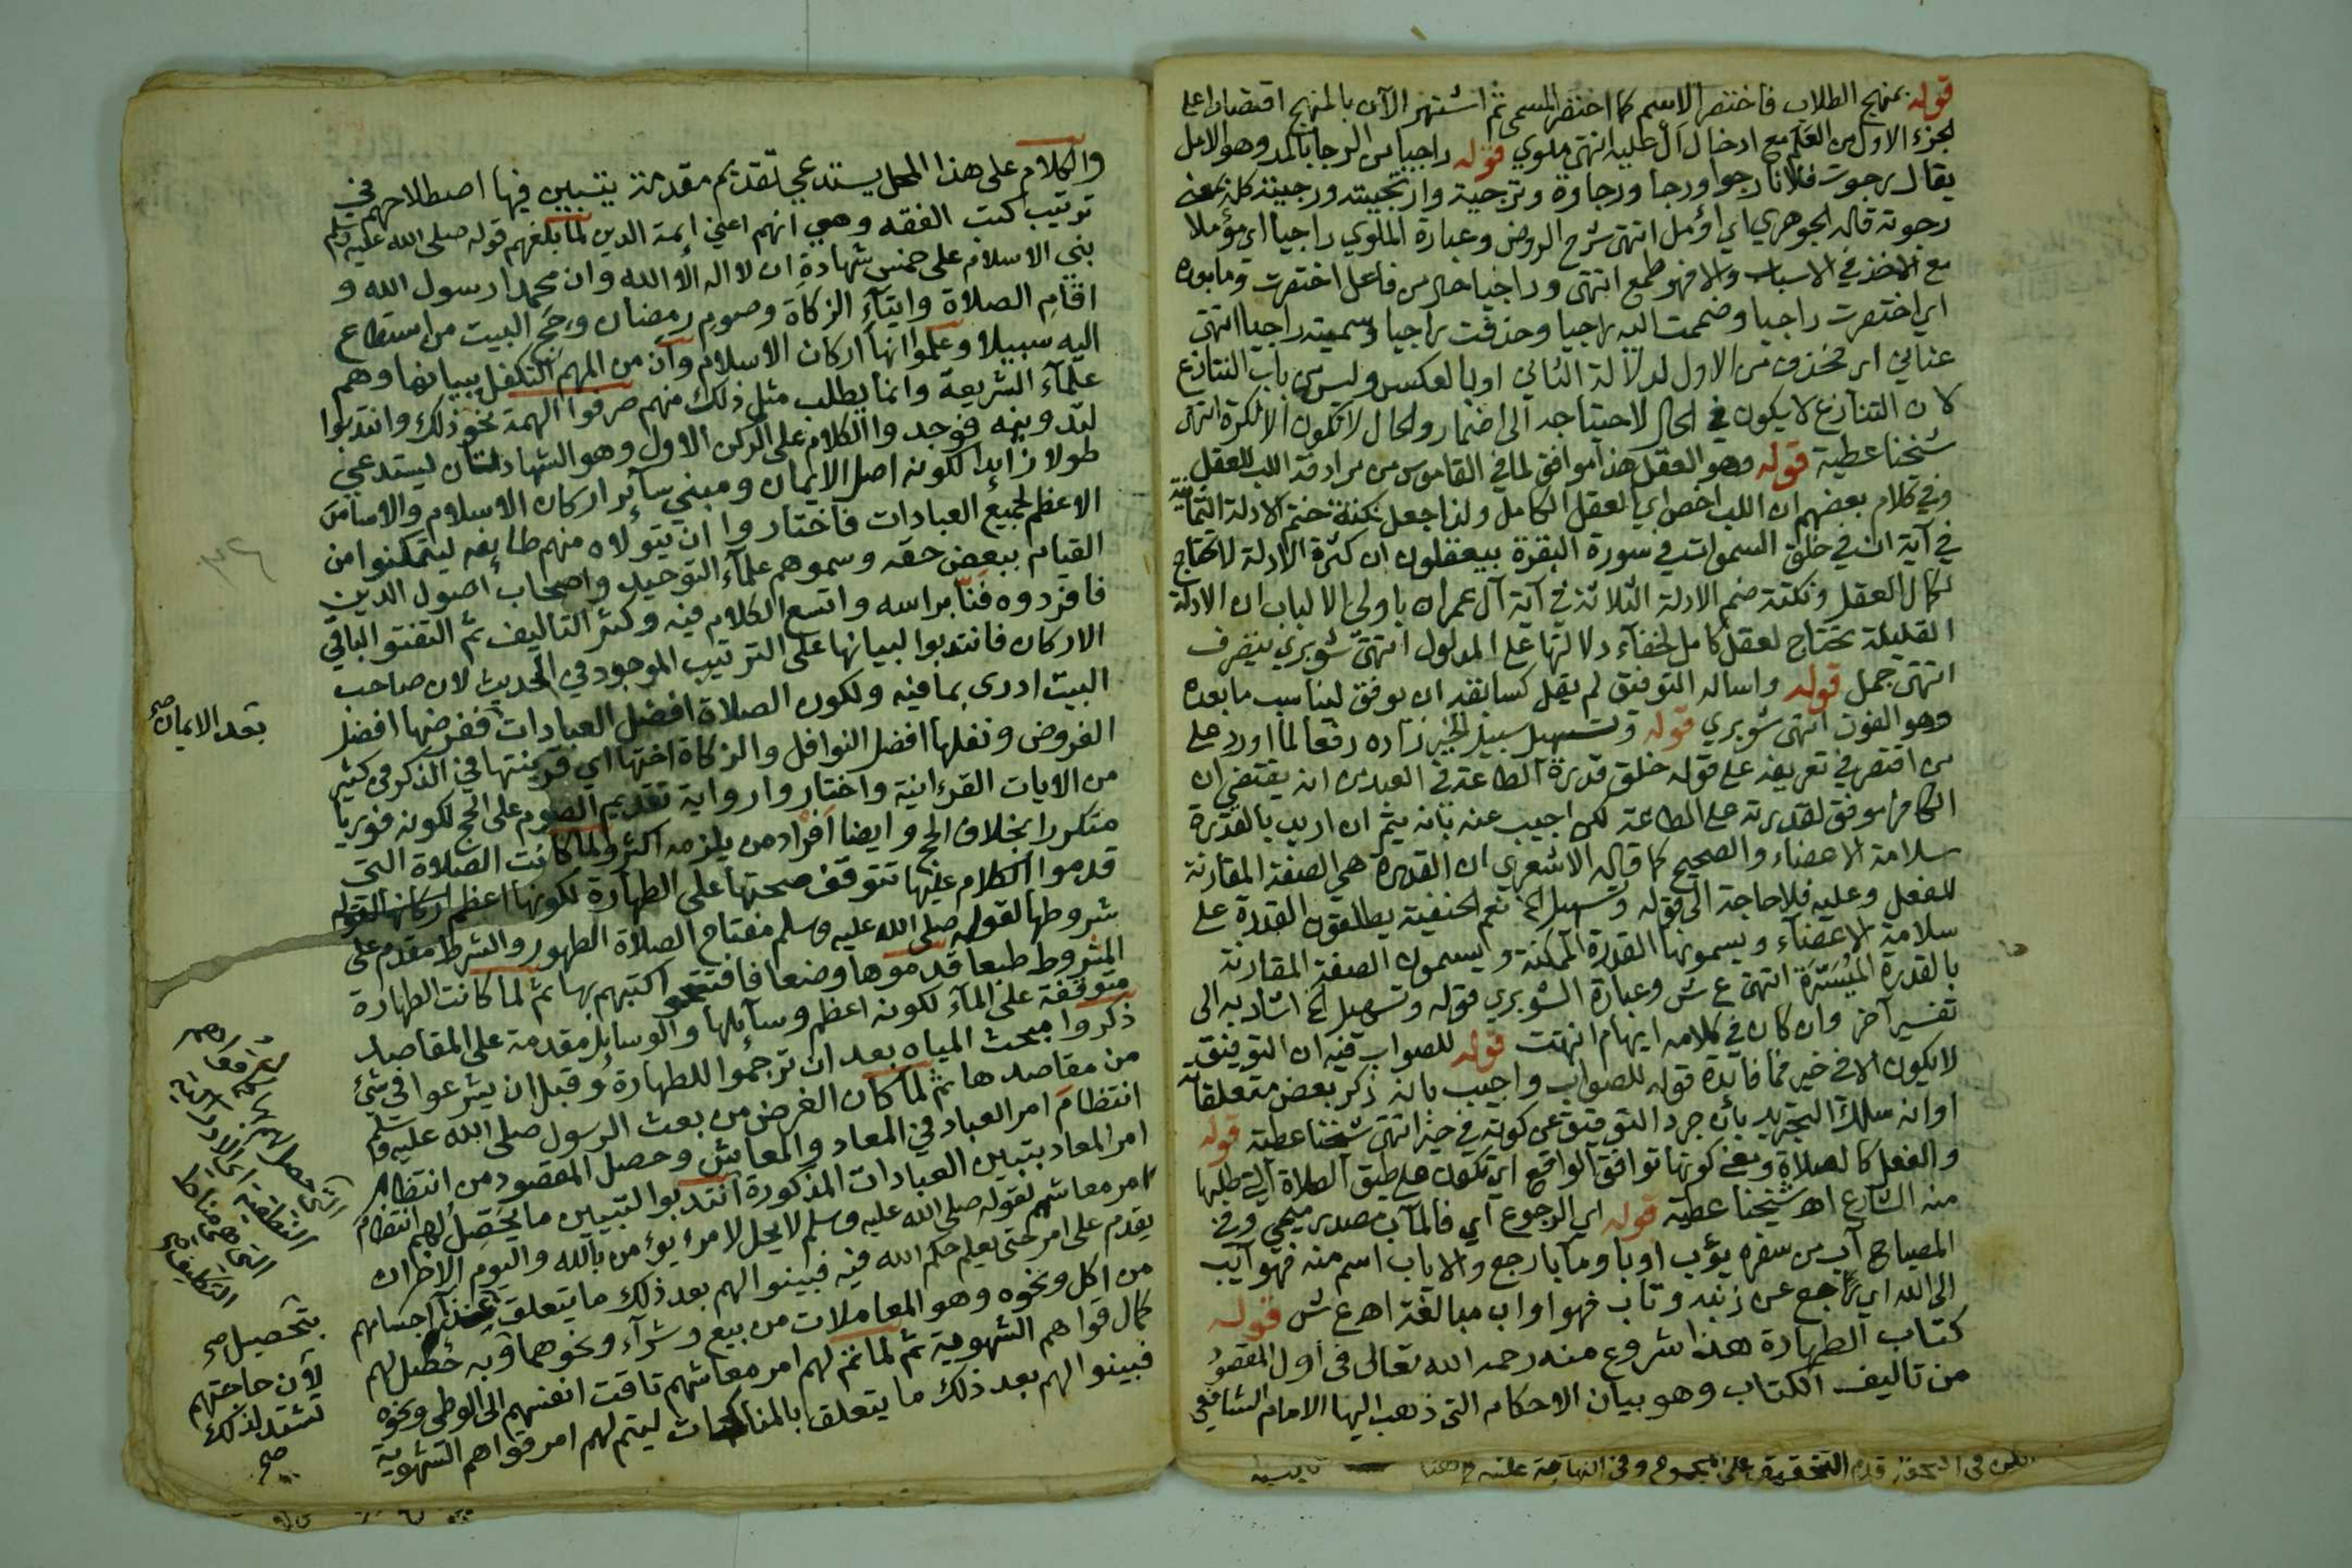 قوله بمنهج الطلاب فاختصر الاسم كما اختصر المسمى ثم اشتهر الآن بالمنهج اقتصارا على
الجزء الاول من العلم مع ادخال ال عليه انتهى ملوي قوله راجيا من الرجا بالمد وهو الامل
يقال رجوت فلانا رجوا ورجا ورجاوة وترجية وارتجيته ورجيته كله بمعنى
رجوته قاله الجوهري اي اؤمل انتهى شرح الروض وعبارة الملوي راجيا اي مؤملا
مع الاخذ في الاسباب والا فهو طمع انتهى وراجيا حال من فاعل اختصرت وما بعده
اي اختصرت راجيا وضممت اليه راجيا وحذفت راجيا وسميته راجيا انتهى
عناني اي فحذف من الاول لدلالة الثاني او بالعكس وليس من باب التنازع
لان التنازع لا يكون في الحال لاحتياجه الى اضمار والحال لا تكون الا نكرة انتهى
شيخنا عطية قوله وهو العقل هذا موافق لما في القاموس من مرادفة اللب للعقل
وفي كلام بعضهم ان اللب اخص اي العقل الكامل ولذا جعل نكتة ختم الادلة الثمانية
في آية ان في خلق السموات في سورة البقرة بيعقلون ان كثرة الادلة لا تحتاج
لكمال العقل ونكتة ضم الادلة الثلاثة في آية آل عمران باولى الالباب ان الادلة
القليلة تحتاج لعقل كامل لخفآء دلالتها على المدلول انتهى شوبري بتصرف
انتهى جمل قوله واساله التوفيق لم يقل كسابقه ان يوفق ليناسب ما بعده
وهو الفوز انتهى شوبري قوله وتسهيل سبيل الخير زاده دفعا لما اورد على
من اقتصر في تعريفه على قوله خلق قدرة الطاعة في العبد من انه يقتضي ان
الكافر موفق لقدرته على الطاعة لكن اجيب عنه بانه يتم ان اريد بالقدرة
سلامة الاعضاء والصحيح كما قاله الاشعري ان القدرة هي الصفة المقارنة
للفعل وعليه فلا حاجة الى قوله وتسهيل الخ نعم الحنفية يطلقون القدرة على
سلامة الاعضآء ويسمونها القدرة الممكنة ويسمون الصفة المقارنة
بالقدرة الميسرة انتهى ع ش وعبارة الشوبري قوله وتسهيل الخ اشار به الى
تفسير آخر وان كان في كلامه ايهام انتهت قوله للصواب فيه ان التوفيق
لا يكون الا في خير فما فايدة قوله للصواب واجيب بانه ذكر بعض متعلقاته
او انه سلك التجريد بان جرد التوفيق عن كونه في خير انتهى شيخنا عطية قوله
والفعل كالصلاة ومعنى كونها توافق الواقع اي تكون على طبق الصلاة التي طلبها
منه الشارع اه شيخنا عطية قوله اي الرجوع اي فالمآب مصدر ميمي وفي
المصباح آب من سفره يؤب اوبا ومآبا رجع والاياب اسم منه فهو آيب
الى الله اي راجع عن ذنبه وتاب فهو اواب مبالغة اه ع ش قوله
كتاب الطهارة هذا شروع منه رحمه الله تعالى في اول المقصود
من تاليف الكتاب وهو بيان الاحكام التي ذهب اليها الامام الشافعي
والكلام على هذا المحل يستدعي تقديم مقدمة يتبين فيها اصطلاحهم في
ترتيب كتب الفقه وهي انهم اعني ايمة الدين لما بلغهم قوله صلى الله عليه وسلم
بني الاسلام على خمس شهادة ان لا اله الا الله وان محمدا رسول الله و
اقام الصلاة وايتآء الزكاة وصوم رمضان وحج البيت من استطاع
اليه سبيلا وعلموا انها اركان الاسلام وان من المهم التكفل ببيانها وهم
علمآء الشريعة وانما يطلب مثل ذلك منهم صرفوا الهمة نحو ذلك وانتدبوا
لتدوينه فوجدوا الكلام على الركن الاول وهو الشهادتان يستدعي
طولا زايدا لكونه اصل الايمان ومبني سآئر اركان الاسلام والاساس
الاعظم لجميع العبادات فاختاروا ان يتولاه منهم طايفه ليتمكنوا من
القيام ببعض حقه وسموهم علمآء التوحيد واصحاب اصول الدين
فافردوه فنا براسه واتسع الكلام فيه وكثر التاليف ثم التفتوا لباقي
الاركان فانتدبوا لبيانها على الترتيب الموجود في الحديث لان صاحب
البيت ادرى بما فيه ولكون الصلاة افضل العبادات ففرضها افضل
بعد الايمان صح
الفروض ونفلها افضل النوافل والزكاة اختها اي قرينتها في الذكر في كثير
من الايات القرءانية واختاروا رواية تقديم الصوم على الحج لكونه فوريا
متكررا بخلاف الحج وايضا افراد من يلزمه اكثر ولما كانت الصلاة التي
قدموا الكلام عليها تتوقف صحتها على الطهارة لكونها اعظم اركانها لقوله
شروطها لقوله صلى الله عليه وسلم مفتاح الصلاة الطهور والشرط مقدم على
المشروط طبعا قدموها وضعا فافتتحو اكتبهم بها ثم لما كانت الطهارة
متوقفة على المآء لكونه اعظم وسآئلها والوسايل مقدمة على المقاصد
ذكروا مبحث المياه بعد ان ترجموا للطهارة وقبل ان يشرعوا في شئ
من مقاصدها ثم لما كان الغرض من بعث الرسول صلى الله عليه وسلم
انتظام امر العباد في المعاد والمعاش وحصل المقصود من انتظام
امر المعاد بتبيين العبادات المذكورة انتدبوا لتبيين ما يحصل لهم انتظام
امر معاشهم لقوله صلى الله عليه وسلم لا يحل لامرء يؤمن بالله واليوم الاخر ان
يقدم على امر حتى يعلم حكم الله فيه فبينوا لهم بعد ذلك ما يتعلق اجسامهم
بتحصيل صح
من اكل ونحوه وهو المعاملات من بيع وشرآء ونحوهما وبه حصل لهم
كمال قواهم الشهوية ثم لما تم لهم امر معاشهم تاقت انفسهم الى الوطى ونحوه
لان حاجتهم
تشتد لذلك
صح
فبينوا لهم بعد ذلك ما يتعلق بالمناكحات ليتم لهم امر قواهم الشهوية